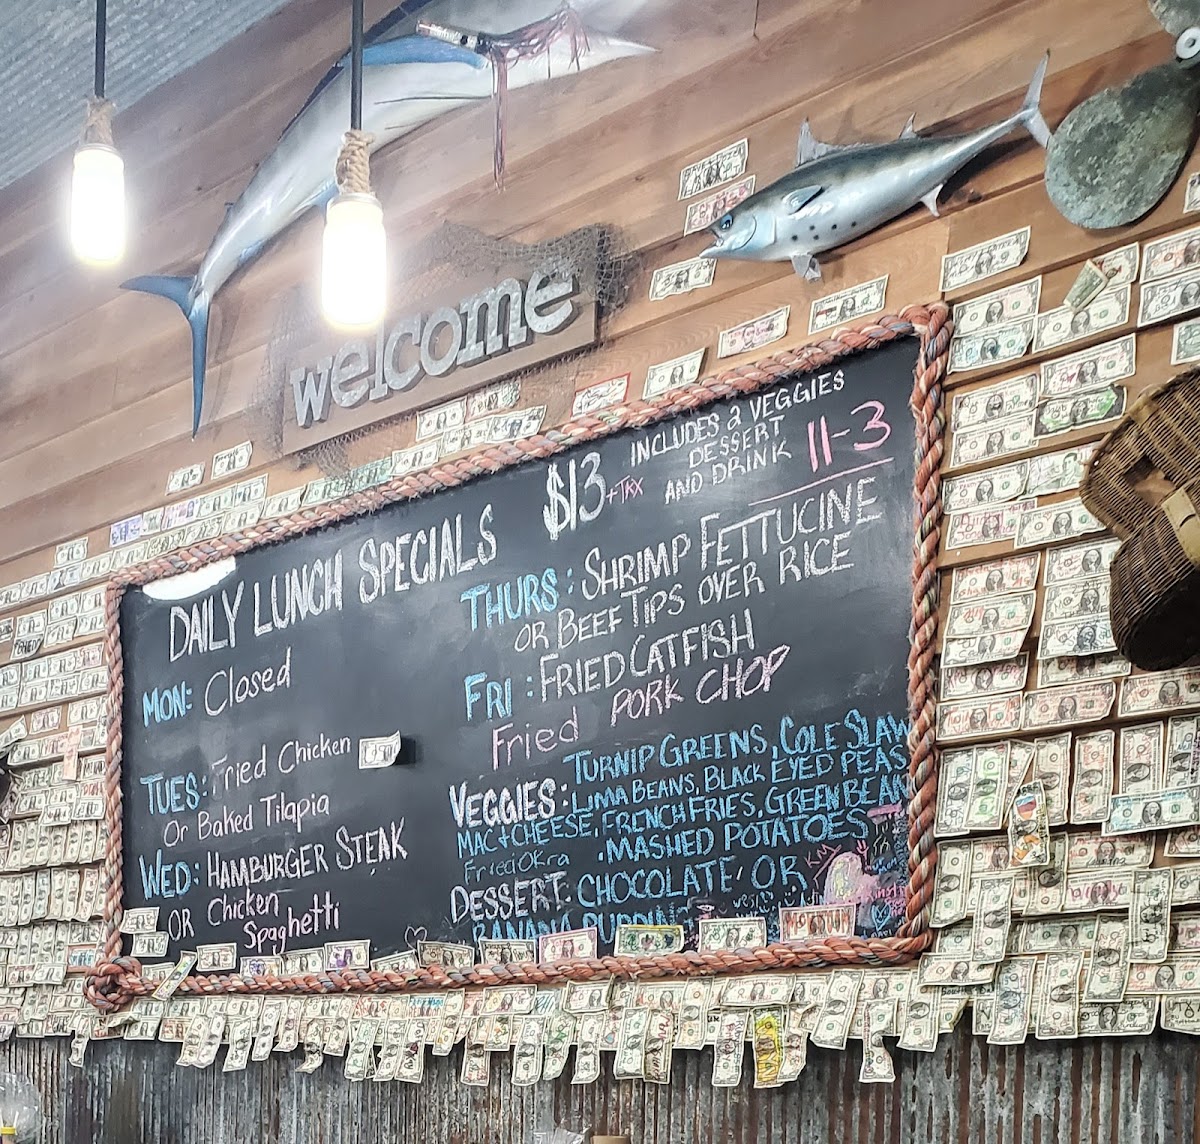 welcome
DAILY LUNCH SPECIALS
$13 +TAX
INCLUDES 2 VEGGIES
DESSERT
AND DRINK
11-3
MON: Closed
TUES: Fried Chicken
Or Baked Tilapia
WED: HAMBURGER STEAK
OR Chicken
Spaghetti
THURS: SHRIMP FETTUCINE
OR BEEF TIPS OVER RICE
FRI: FRIED CATFISH
Fried PORK CHOP
VEGGIES: TURNIP GREENS, COLE SLAW
LIMA BEANS, BLACK EYED PEAS
MAC & CHEESE, FRENCH FRIES, GREEN BEAN
Fried Okra . MASHED POTATOES
DESSERT: CHOCOLATE OR
BANANA PUDDING